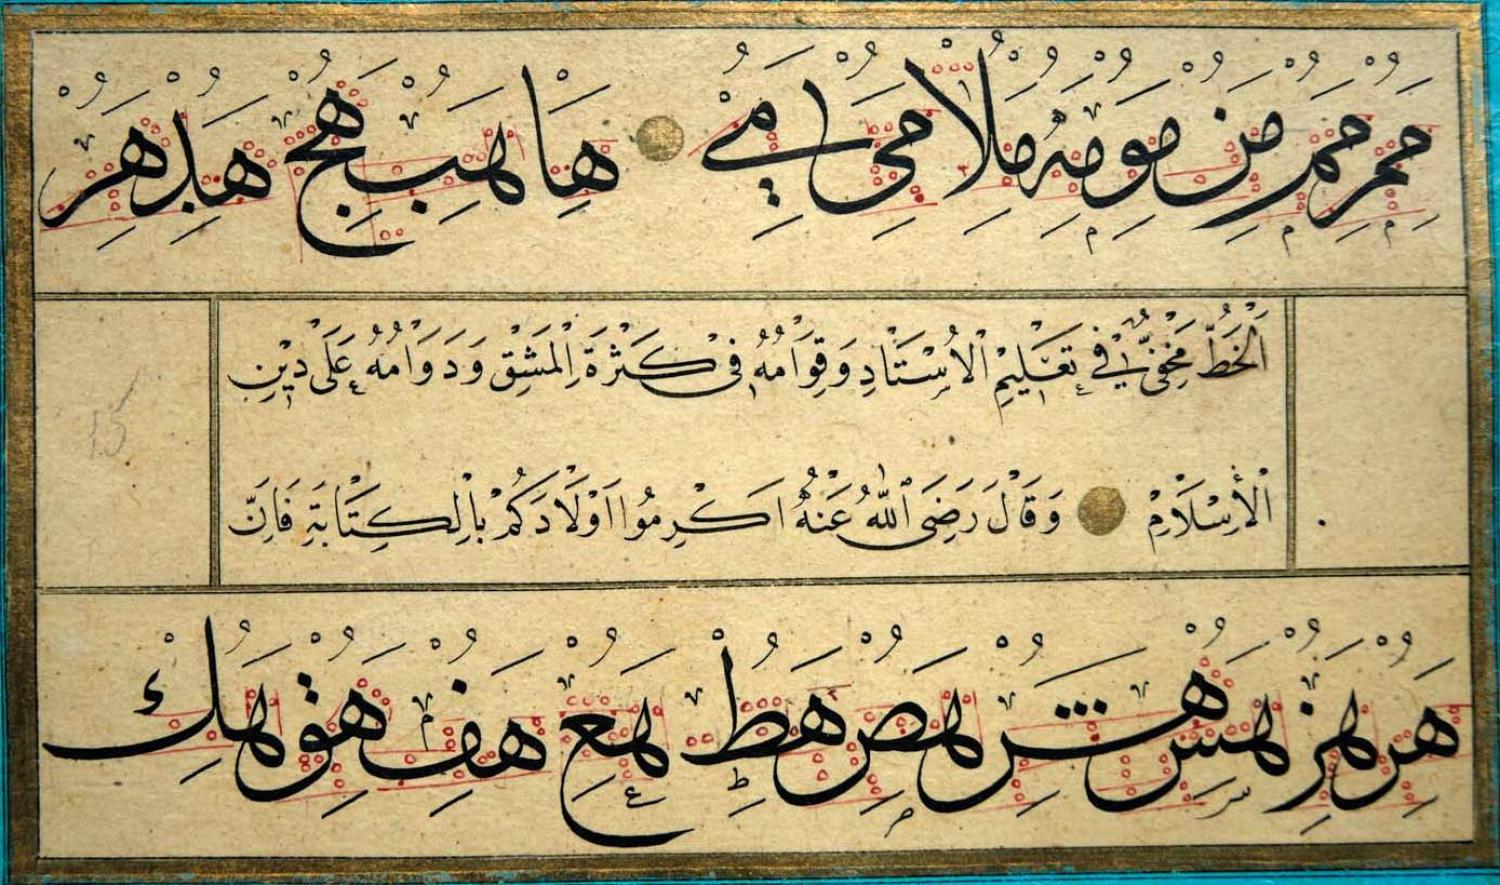 مم مم من مو مه ملا مى مے ها هب هج هد هر
اَلْخَطُّ مَخْفِىٌّ فِي تَعْلِيمِ الْاُسْتَادِ وَقِوَامُهُ فِى كَثْرَةِ الْمَشْقِ وَدَوَامُهُ عَلَى دِينِ
15
الْاِسْلَامِ وَقَالَ رَضِىَ اللهُ عَنْهُ اَكْرِمُوا اَوْلَادَكُمْ بِالْكِتَابَةِ فَاِنَّ
هر هز هس هش هص هط هع هف هق هك